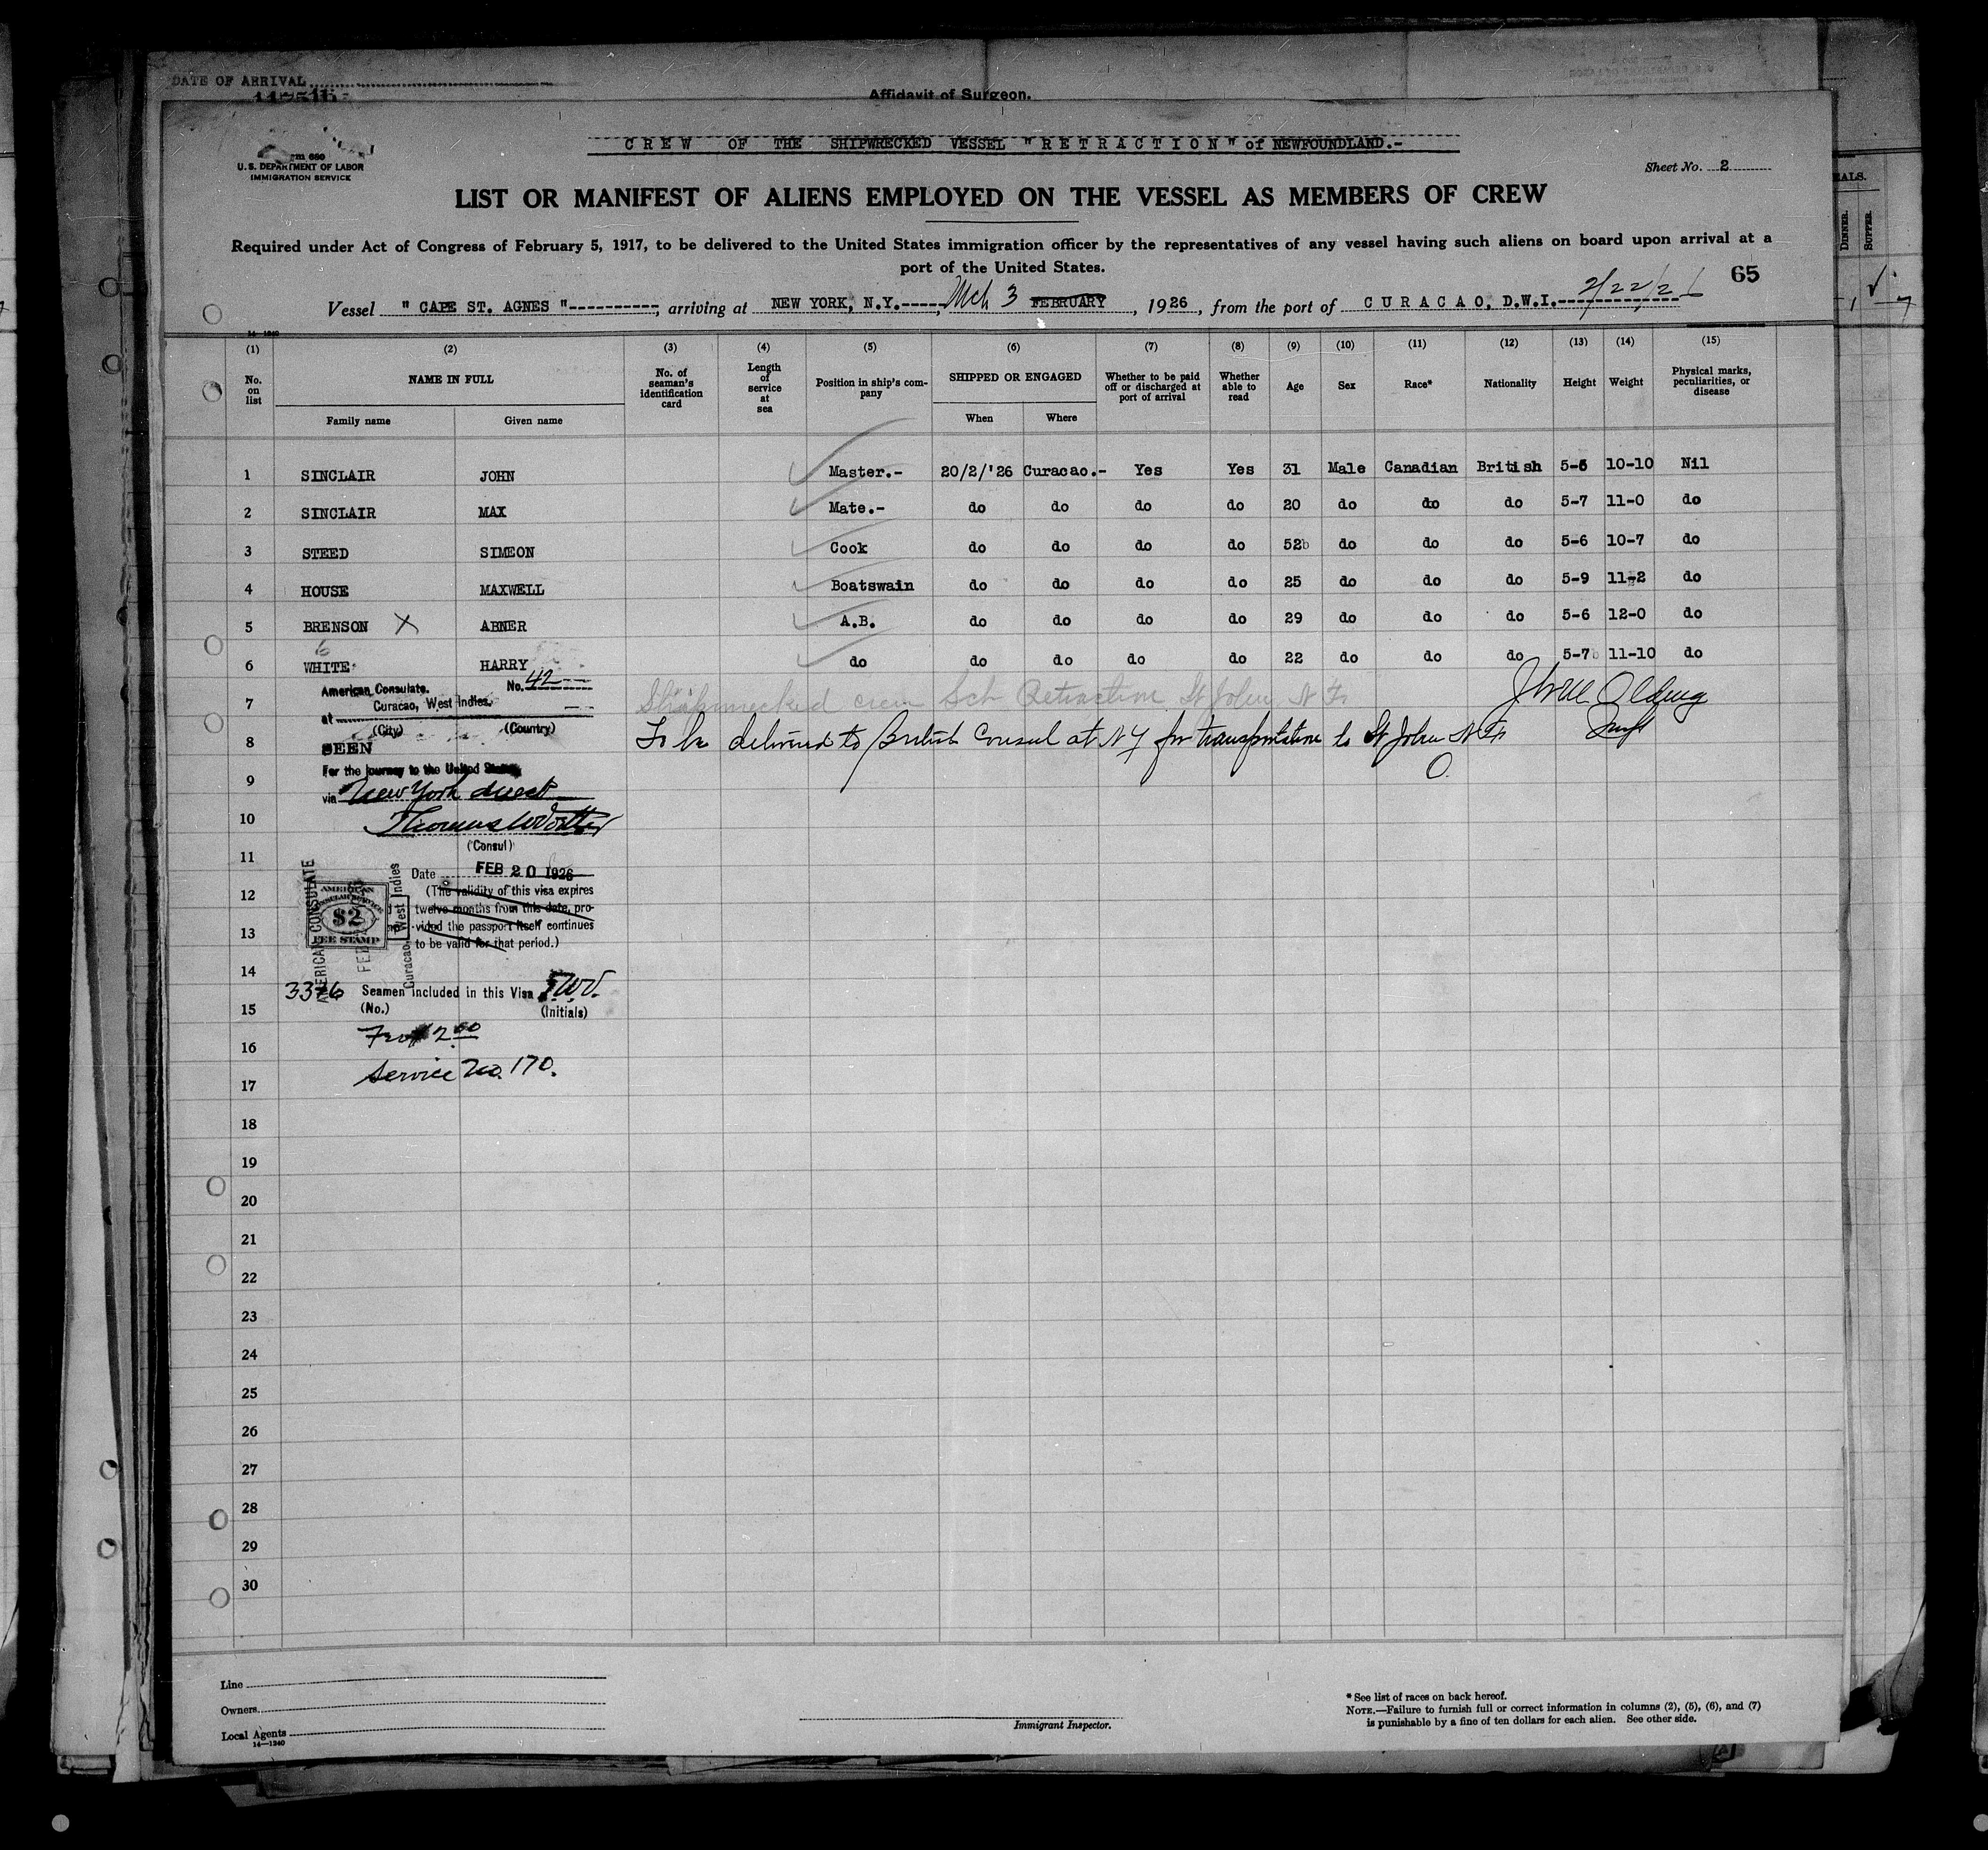 DATE OF ARRIVAL
Affidavit of Surgeon.
CREW OF THE SHIPWRECKED VESSEL "RETRACTION" of NEWFOUNDLAND.-
U.S. DEPARTMENT OF LABOR
IMMIGRATION SERVICE
Sheet No. 2
LIST OR MANIFEST OF ALIENS EMPLOYED ON THE VESSEL AS MEMBERS OF CREW
Required under Act of Congress of February 5, 1917, to be delivered to the United States immigration officer by the representatives of any vessel having such aliens on board upon arrival at a
port of the United States.
65
Vessel " CAPE ST. AGNES "----------, arriving at NEW YORK, N.Y.-----, Mch 3 FEBRUARY, 1926, from the port of CURACAO, D.W.I.- 2/22/26
14-1240
(1) (2) (3) (4) (5) (6) (7) (8) (9) (10) (11) (12) (13) (14) (15)
No. on list
NAME IN FULL
Family name
Given name
No. of seaman's identification card
Length of service at sea
Position in ship's company
SHIPPED OR ENGAGED
When
Where
Whether to be paid off or discharged at port of arrival
Whether able to read
Age
Sex
Race*
Nationality
Height
Weight
Physical marks, peculiarities, or disease
1 SINCLAIR JOHN Master.- 20/2/'26 Curacao.- Yes Yes 31 Male Canadian British 5-6 10-10 Nil
2 SINCLAIR MAX Mate.- do do do do 20 do do do 5-7 11-0 do
3 STEED SIMEON Cook do do do do 52 do do do 5-6 10-7 do
4 HOUSE MAXWELL Boatswain do do do do 25 do do do 5-9 11-2 do
5 BRENSON X ABNER A.B. do do do do 29 do do do 5-6 12-0 do
6 WHITE HARRY do do do do do 22 do do do 5-7 11-10 do
7 Shipwrecked crew Sch Retraction St John N F.
8 To be delivered to British Consul at N Y for transportation to St John N F.
American Consulate. No. 42
at Curacao, West Indies.
(City) (Country)
SEEN
For the journey to the United States
via New York direct
(Consul)
Date FEB 20 1926
(The validity of this visa expires
twelve months from this date, pro-
vided the passport itself continues
to be valid for that period.)
AMERICAN CONSULATE
Curacao, West Indies
AMERICAN
CONSULAR SERVICE
$2
FEE STAMP
3376 Seamen included in this Visa T.W.V.
(No.) (Initials)
Fee $2.00
Service No. 170.
9
10
11
12
13
14
15
16
17
18
19
20
21
22
23
24
25
26
27
28
29
30
Line
Owners
Local Agents
14-1240
Immigrant Inspector.
* See list of races on back hereof.
NOTE.—Failure to furnish full or correct information in columns (2), (5), (6), and (7)
is punishable by a fine of ten dollars for each alien. See other side.
DINNER.
SUPPER.